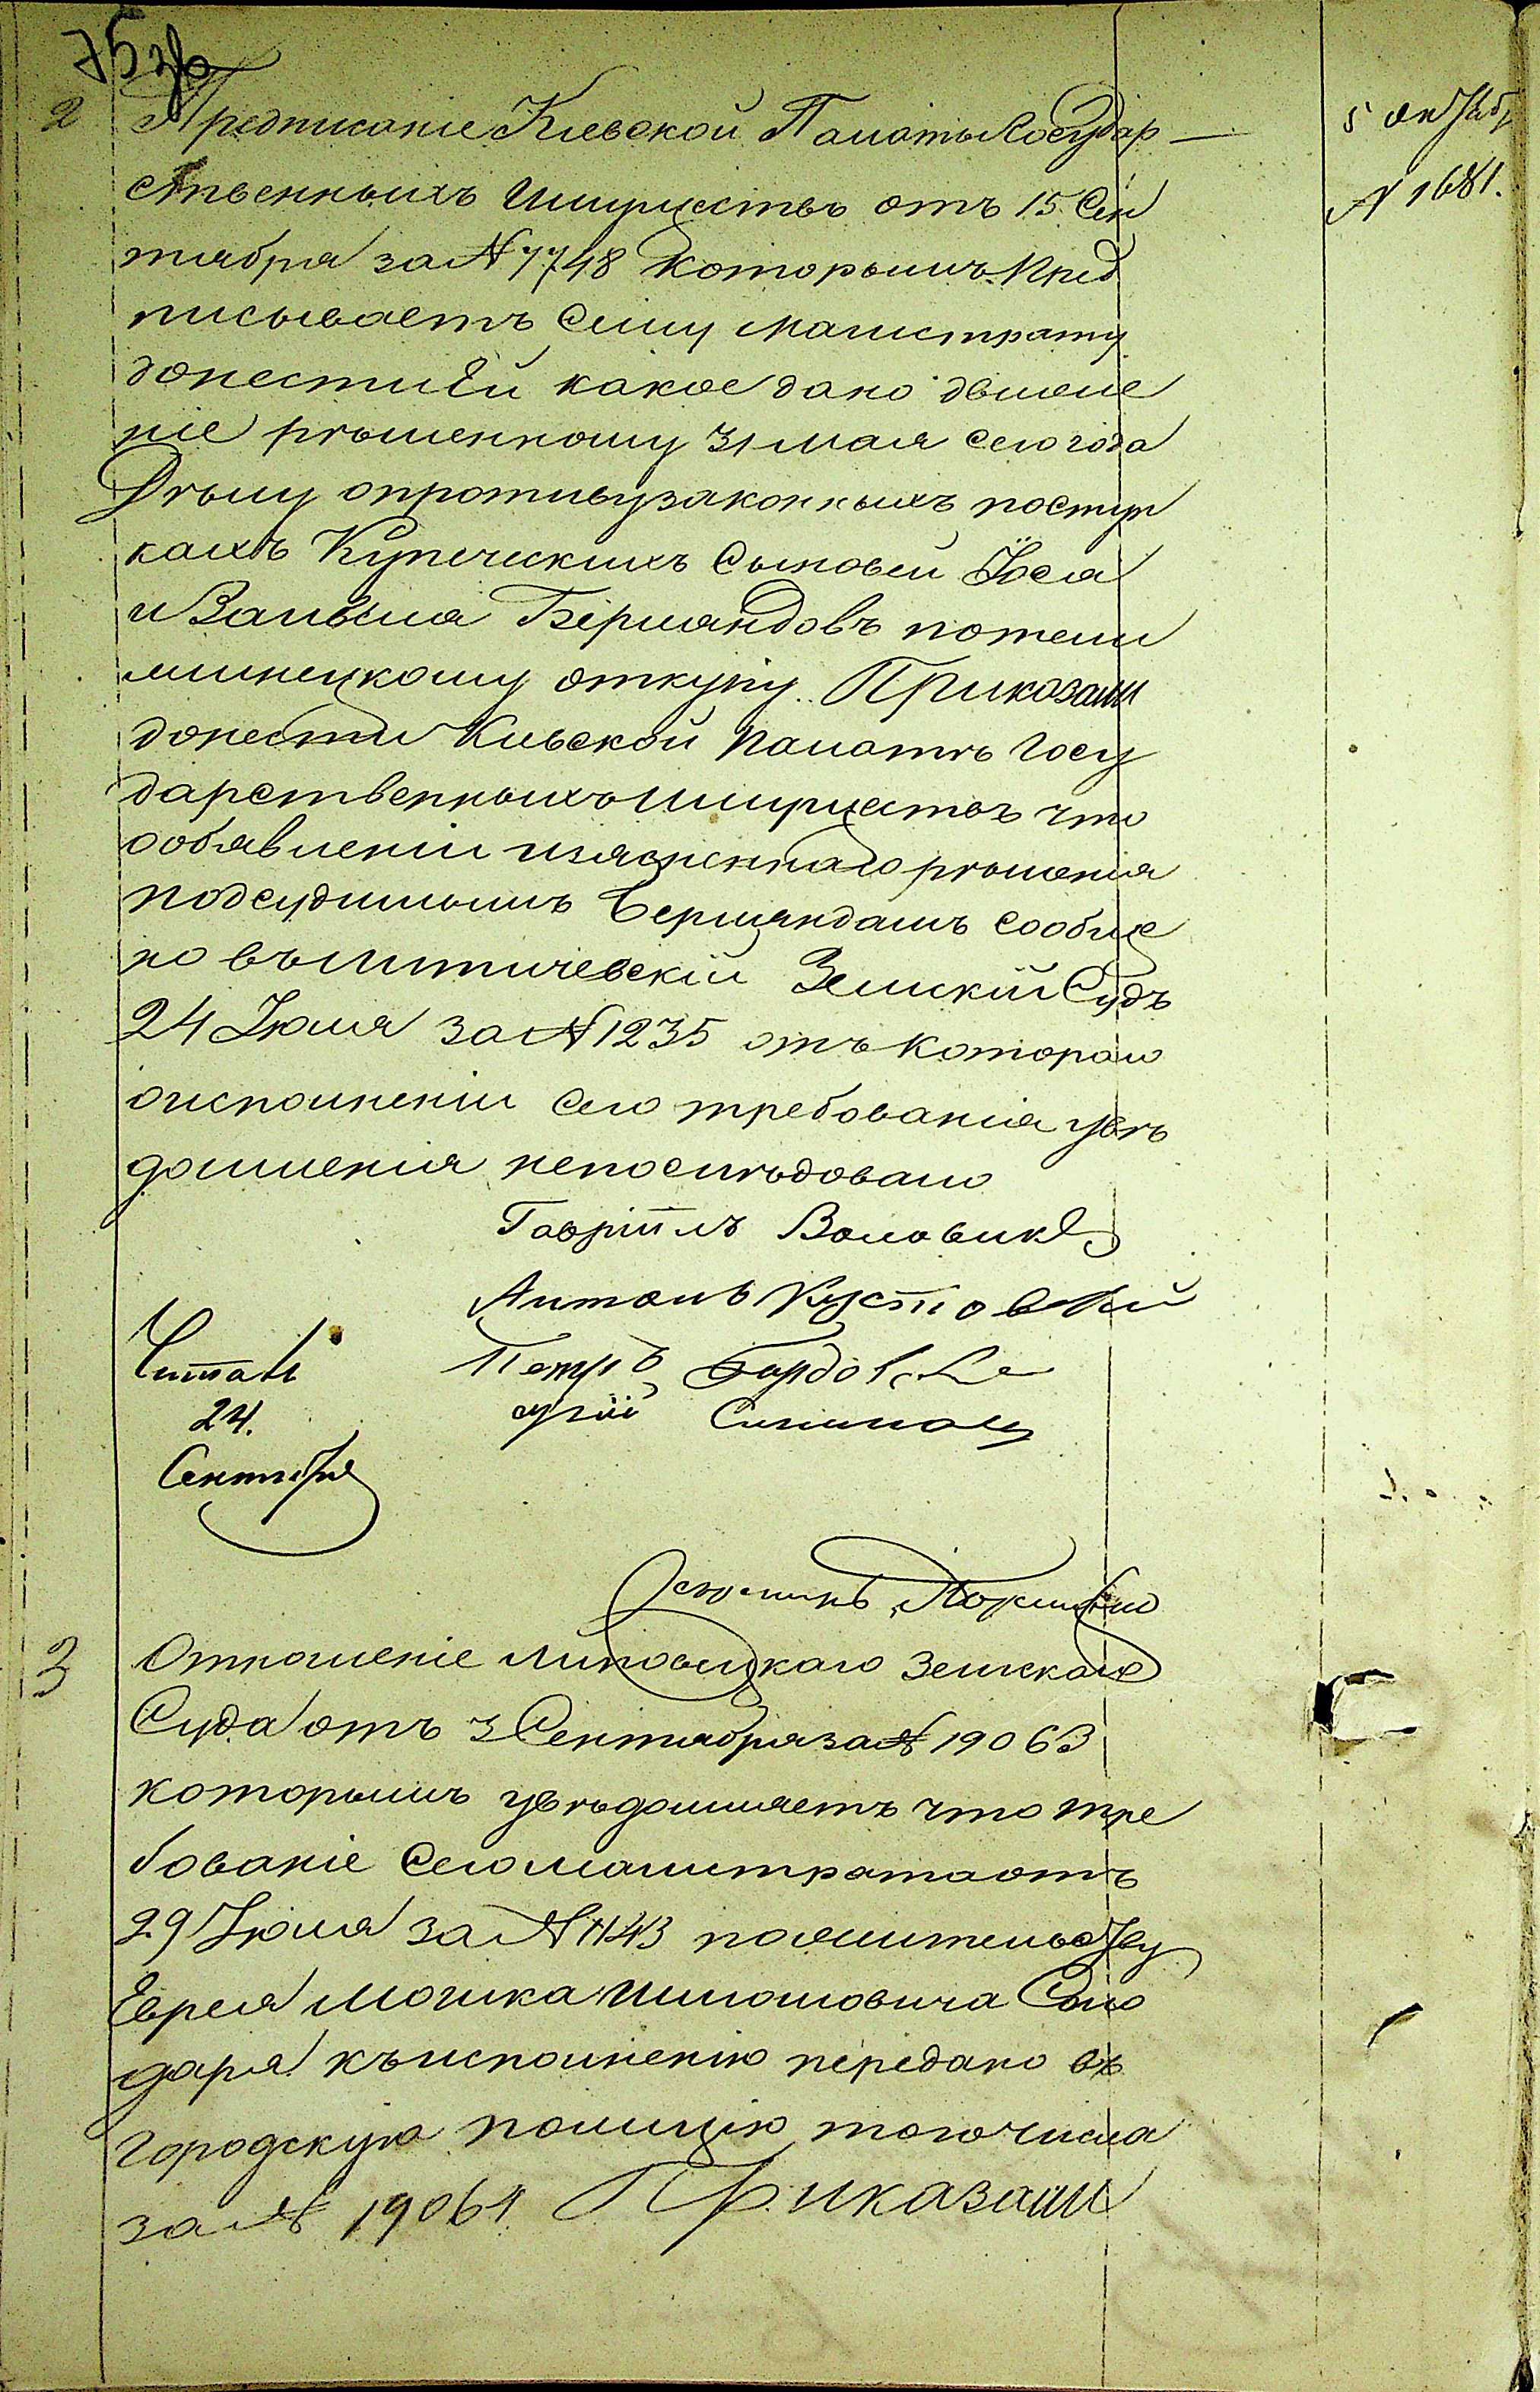 75 зв
2 Предписаніе Кіевской Палаты Государ-
5 октяб
ственныхъ Имуществъ отъ 15 Сен
№ 1681.
тября за № 7748 которымъ пред
писываетъ Сему магистрату
донести Ей какое дано движе
ніе рѣшенному 31 мая сего года
Дѣлу опротивузаконныхъ поступ
кахъ Купеческихъ Сыновей Іося
и Вольвиля Берляндовъ потели
минецкому откупу. Приказали
донести Кіевской Палатѣ Госу
дарственныхъ Имуществъ что
ообявленіи изясненнаго рѣшенія
подсудимымъ Берляндамъ сообще
но въ Липовецкій Земскій Судъ
24 Іюля за № 1235 отъ котораго
оисполненіи сего требованія увѣ
домленія непослѣдовало
Гавріилъ Воловик
Антонъ
Читалъ Петръ
24.
Сентября
3 Отношеніе Липовецкаго Земскаго
Суда отъ 3 Сентября за № 19063
которымъ увѣдомляетъ что тре
бованіе Сего магистрата отъ
29 Іюля за № 1143 пожительству
Еврея Мошка Шмоловича Соло
даря къ исполненію передано въ
городскую полицію того числа
за № 19064 Приказали